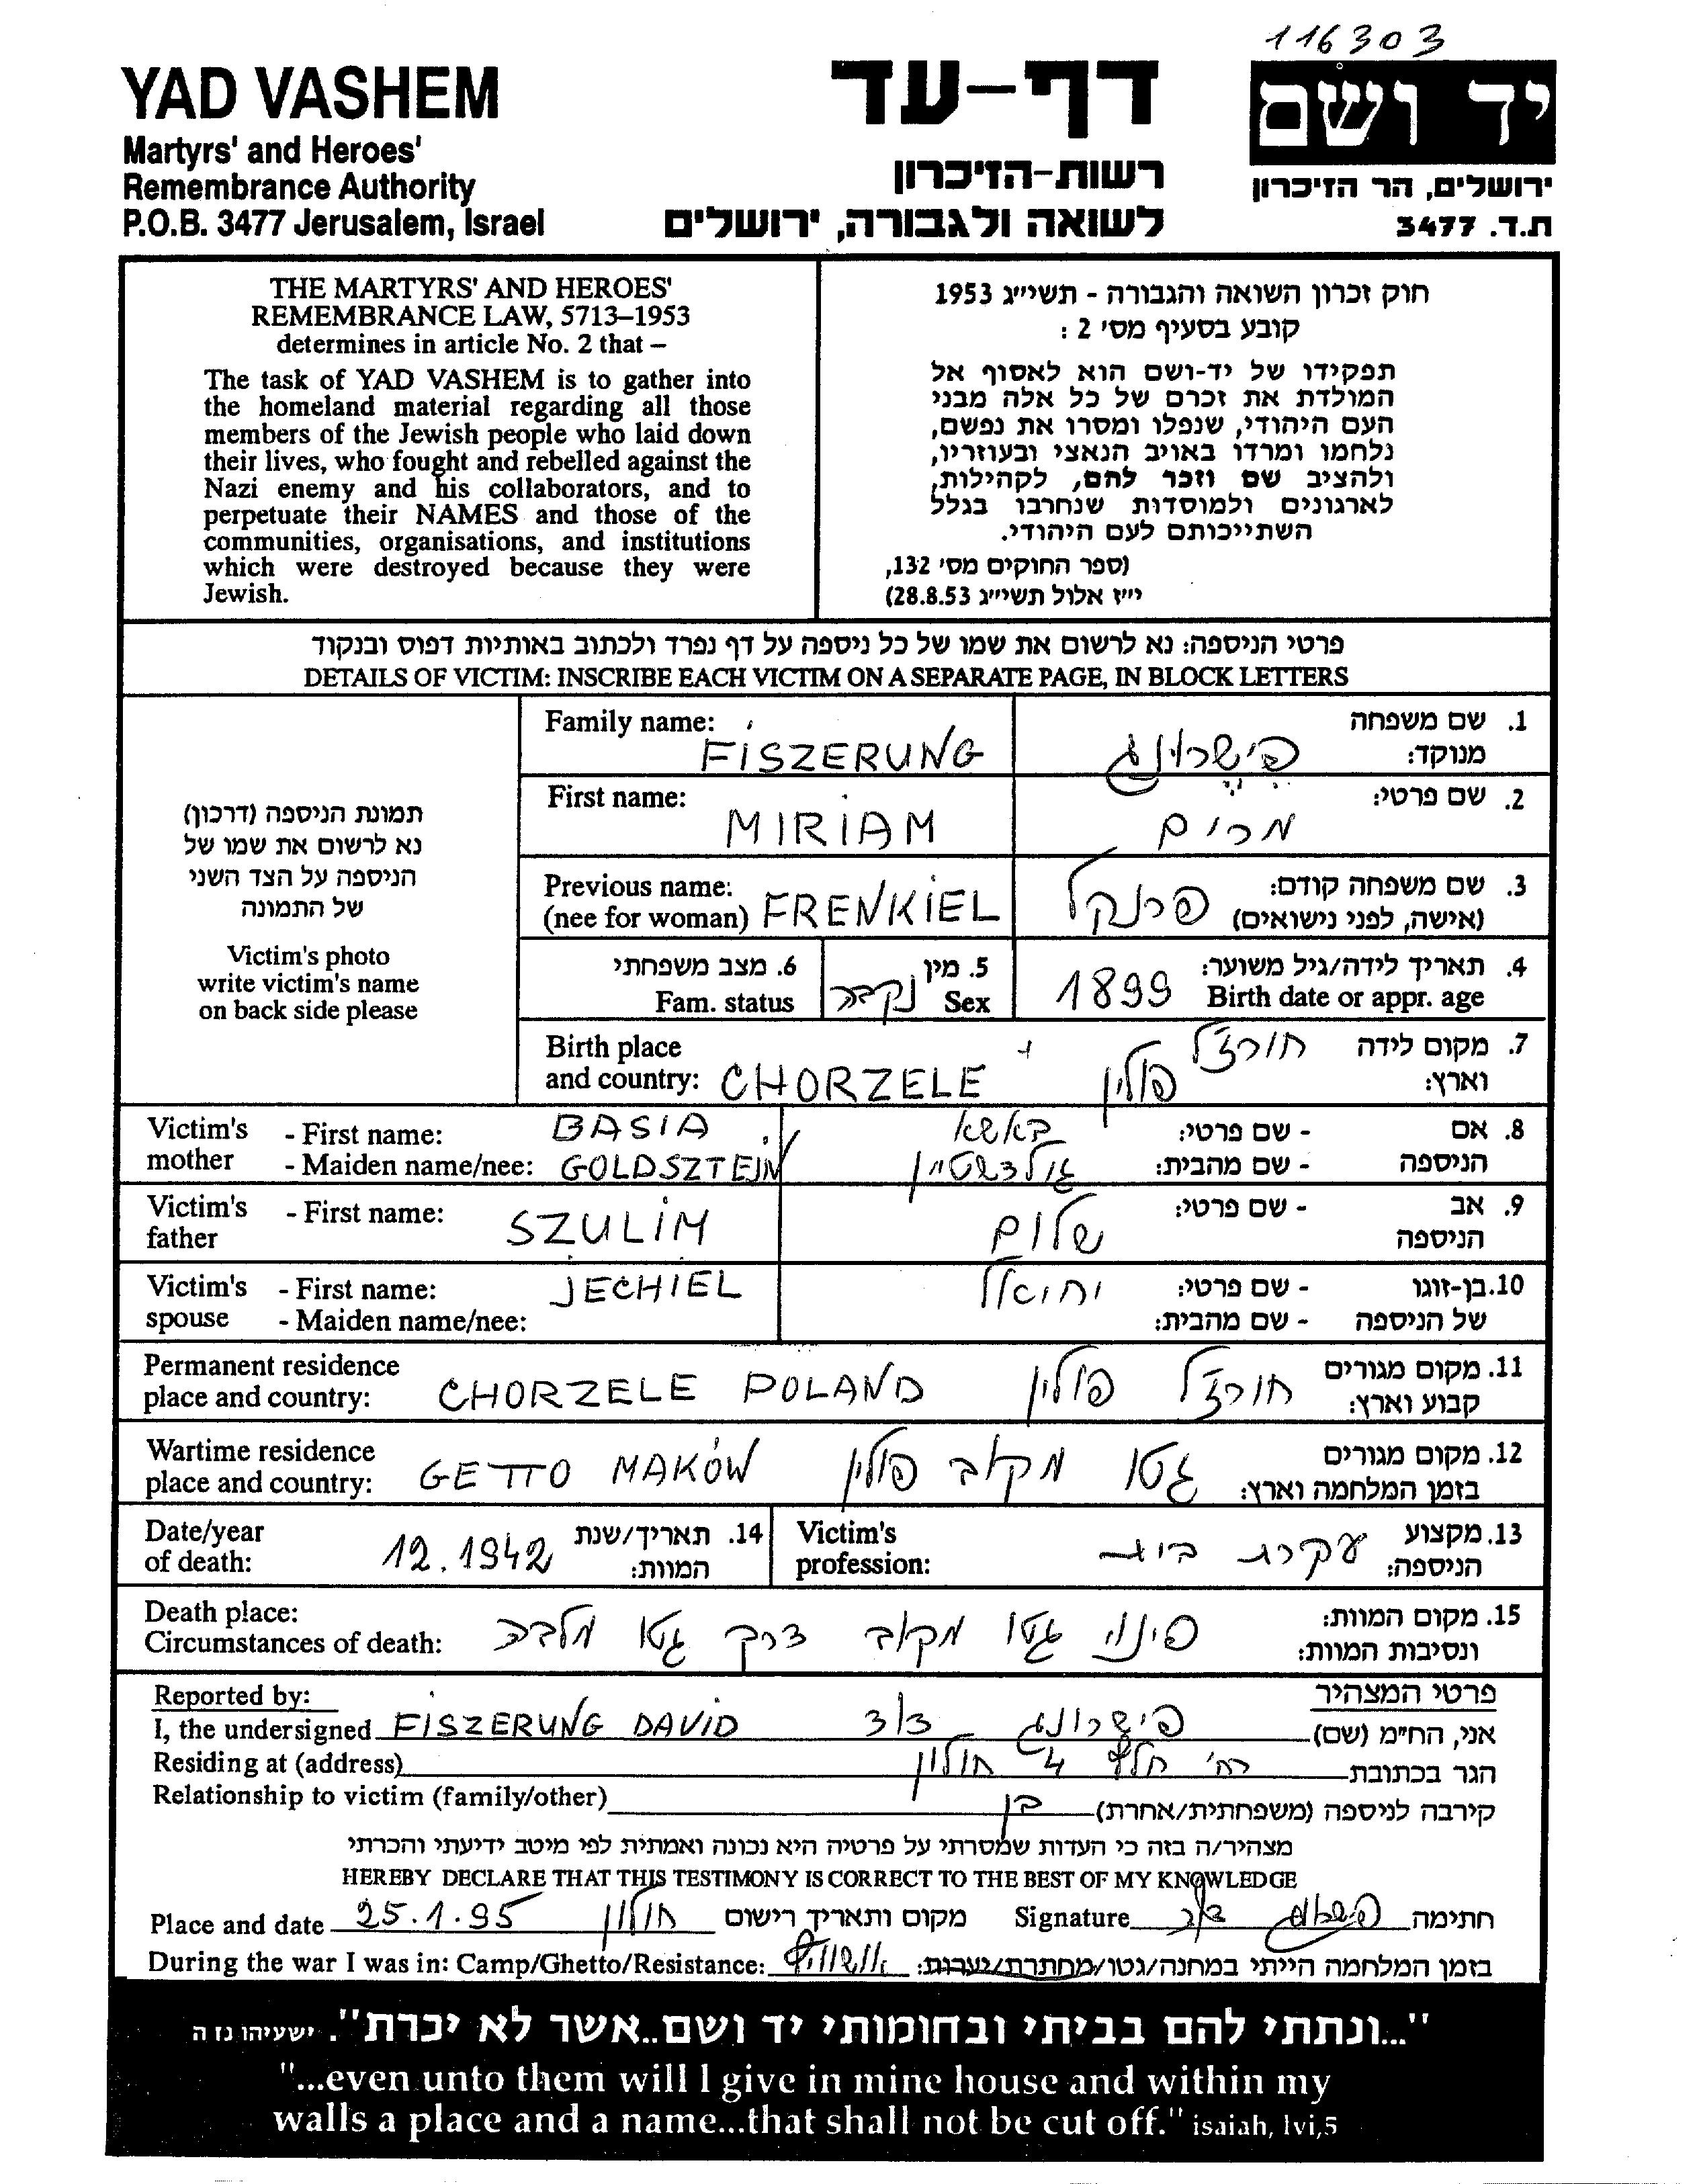 116303
YAD VASHEM
Martyrs' and Heroes'
Remembrance Authority
P.O.B. 3477 Jerusalem, Israel
דף-עד
רשות-הזיכרון
לשואה ולגבורה, ירושלים
יד ושם
ירושלים, הר הזיכרון
ת.ד. 3477
THE MARTYRS' AND HEROES'
REMEMBRANCE LAW, 5713–1953
determines in article No. 2 that –
The task of YAD VASHEM is to gather into
the homeland material regarding all those
members of the Jewish people who laid down
their lives, who fought and rebelled against the
Nazi enemy and his collaborators, and to
perpetuate their NAMES and those of the
communities, organisations, and institutions
which were destroyed because they were
Jewish.
חוק זכרון השואה והגבורה - תשי״ג 1953
קובע בסעיף מס׳ 2 :
תפקידו של יד-ושם הוא לאסוף אל
המולדת את זכרם של כל אלה מבני
העם היהודי, שנפלו ומסרו את נפשם,
נלחמו ומרדו באויב הנאצי ובעוזריו,
ולהציב שם וזכר להם, לקהילות,
לארגונים ולמוסדות שנחרבו בגלל
השתייכותם לעם היהודי.
(ספר החוקים מס׳ 132,
י״ז אלול תשי״ג 28.8.53)
פרטי הניספה: נא לרשום את שמו של כל ניספה על דף נפרד ולכתוב באותיות דפוס ובנקוד
DETAILS OF VICTIM: INSCRIBE EACH VICTIM ON A SEPARATE PAGE, IN BLOCK LETTERS
תמונת הניספה (דרכון)
נא לרשום את שמו של
הניספה על הצד השני
של התמונה
Victim's photo
write victim's name
on back side please
Family name: FISZERUNG פישרונג 1. שם משפחה
מנוקד:
First name: MIRIAM מרים 2. שם פרטי:
Previous name: 3. שם משפחה קודם:
(nee for woman) FRENKIEL פרנקל (אישה, לפני נישואים)
6. מצב משפחתי 5. מין 4. תאריך לידה/גיל משוער:
Fam. status נקבה Sex 1899 Birth date or appr. age
Birth place חורז'ל 7. מקום לידה
and country: CHORZELE פולין וארץ:
Victim's - First name: BASIA באשא - שם פרטי: 8. אם
mother - Maiden name/nee: GOLDSZTEJN גולדשטיין - שם מהבית: הניספה
Victim's - First name: SZULIM שלום - שם פרטי: 9. אב
father הניספה
Victim's - First name: JECHIEL יחיאל - שם פרטי: 10. בן-זוגו
spouse - Maiden name/nee: - שם מהבית: של הניספה
Permanent residence 11. מקום מגורים
place and country: CHORZELE POLAND חורז'ל פולין קבוע וארץ:
Wartime residence 12. מקום מגורים
place and country: GETTO MAKÓW גטו מקוב פולין בזמן המלחמה וארץ:
Date/year 14. תאריך/שנת Victim's 13. מקצוע
of death: 12.1942 המוות: profession: עקרת בית הניספה:
Death place: 15. מקום המוות:
Circumstances of death: פינוי גטו מקוב דרך גטו מלבה ונסיבות המוות:
Reported by: פרטי המצהיר
I, the undersigned FISZERUNG DAVID פישרונג דוד אני, הח״מ (שם)
Residing at (address) רח' 4 חולון הגר בכתובת
Relationship to victim (family/other) בן קירבה לניספה (משפחתית/אחרת)
מצהיר/ה בזה כי העדות שמסרתי על פרטיה היא נכונה ואמתית לפי מיטב ידיעתי והכרתי
HEREBY DECLARE THAT THIS TESTIMONY IS CORRECT TO THE BEST OF MY KNOWLEDGE
Place and date 25.1.95 חולון מקום ותאריך רישום Signature חתימה
During the war I was in: Camp/Ghetto/Resistance: אושוויץ בזמן המלחמה הייתי במחנה/גטו/מחתרת/יערות:
"...ונתתי להם בביתי ובחומותי יד ושם..אשר לא יכרת". ישעיהו נז ה
"...even unto them will I give in mine house and within my
walls a place and a name...that shall not be cut off." isaiah, lvi,5